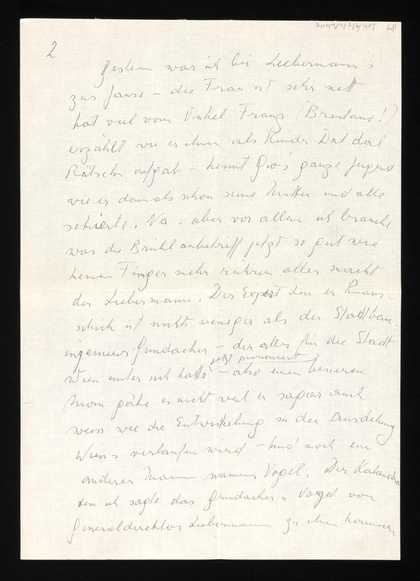 2
Gestern war ich bei Liebermann's
zur Jause – die Frau ist sehr nett
hat viel vom Onkel Franz (Brentano!)
erzählt wie er ihnen als Kinder Dal dal
Rätseln aufgab – kennt Gio's ganze Jugend
wie er damals schon seine Mutter und alle
sekierte. Na – aber vor allem ich brauche
was die Brühl anbetrifft jetzt so gut wie
keinen Finger mehr rühren alles macht
der Liebermann. Der Expert den er
schick ist nichts weniger als der Stadtbau
ingenieur Gundacker – der alles für die Stadt
jetzt pensioniert
Wien unter sich hatte – also einen besseren
Mann gäbe es nicht weil er sogar auch
weiss wie die Entwickelung in der Ausdehnung
Wiens verlaufen wird – und noch ein
anderer Mann namens Vogel. Der
dem ich sagte das Gundacker u Vogel von
Generaldirektor Liebermann zu ihm kommen